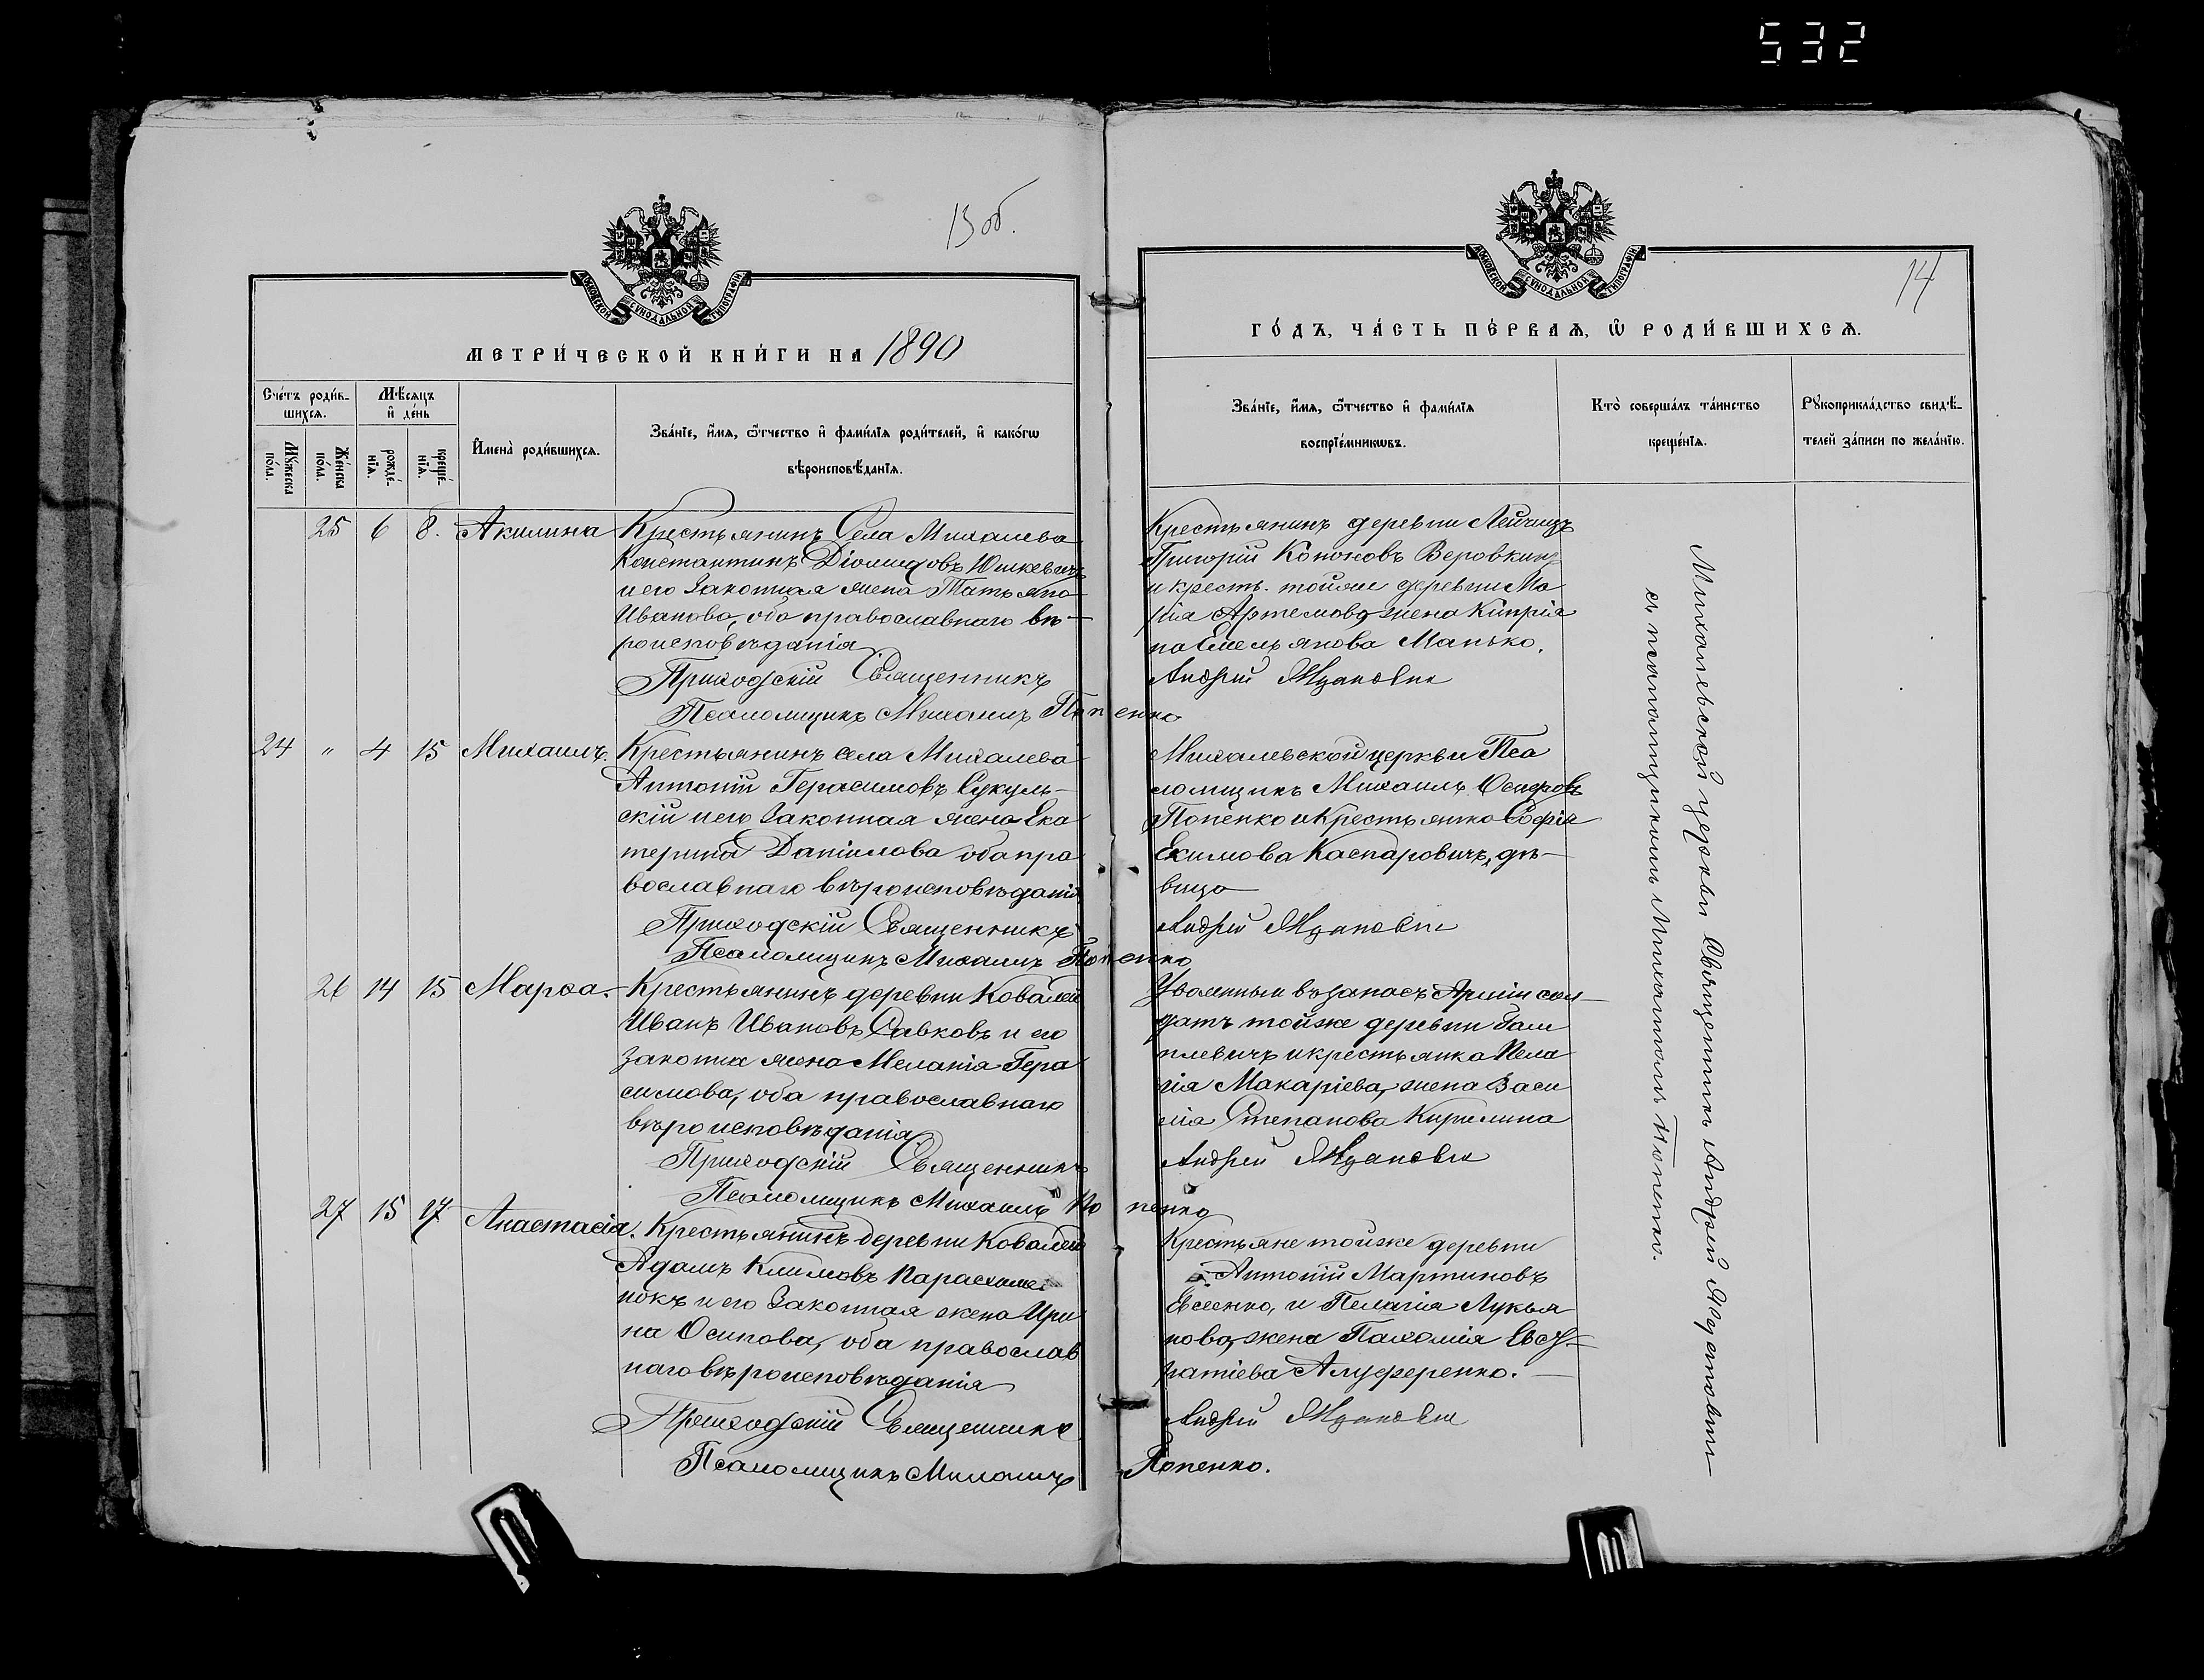 532
13 об.
МОСКОВСКОЙ СѴНОДАЛЬНОЙ ТИПОГРАФІИ
МЕТРИ́ЧЕСКОЙ КНИ́ГИ НА 1890
Сче́тъ роди́в-
шихсѧ.
Мꙋ́жеска по́ла.
Же́нска по́ла.
Мѣ́сѧцъ
и҆ де́нь
рожде́-
нїѧ.
креще́-
нїѧ.
И҆мена̀ роди́вшихсѧ.
Зва́нїе, и҆́мѧ, ѻ҆́тчество и҆ фами́лїѧ роди́телей, и҆ како́гѡ
вѣроисповѣ́данїѧ.
25 6 8. Акилина Крестьянинъ Села Михалева
Константинъ Діомидовъ Юшкевичъ
и его Законная жена Татьяна
Иванова, оба православнаго вѣ-
роисповѣданія
Приходскій Священникъ
Псаломщикъ Михаилъ Попенко
24 " 4 15 Михаилъ. Крестьянинъ села Михалева
Антоній Герасимовъ Сукуль-
скій и его Законная жена Ека
терина Даніилова оба пра
вославнаго вѣроисповѣданія
Приходскій Священникъ
Псаломщикъ Михаилъ Попенко
26 14 15 Марѳа. Крестьянинъ деревни Ковалей
Иванъ Ивановъ Савковъ и его
законна жена Меланія Гера
симова, оба православнаго
вѣроисповѣданія.
Приходскій Священникъ
Псаломщикъ Михаилъ Попенко
27 15 17 Анастасія. Крестьянинъ деревни Ковалей
Адамъ Климовъ
нокъ и его Законная жена Ири
на Осипова, оба православ
наго вѣроисповѣданія
Приходскій Священникъ
Псаломщикъ Михаилъ Попенко.
14
МОСКОВСКОЙ СѴНОДАЛЬНОЙ ТИПОГРАФІИ
ГО́ДЪ, ЧА́СТЬ ПЕ́РВАѦ, Ѡ҆ РОДИ́ВШИХСѦ.
Зва́нїе, и҆́мѧ, ѻ҆́тчество и҆ фами́лїѧ
воспрїе́мникѡвъ.
Кто̀ соверша́лъ та́инство
креще́нїѧ.
Рꙋкоприкла́дство свидѣ́-
телей за́писи по жела́нїю.
Крестьянинъ деревни Лейчицъ
Григорій Кононовъ Веровкинъ
и кресть. тойже деревни Ма
рія Артемова, жена Кипрія
на Емельянова Манько.
Андрей Ждановичъ
Михалевской церкви Пса
ломщикъ Михаилъ
Попенко и Крестьянка Софія
Екимова Каспаровичъ, дѣ-
вица
Андрей Ждановичъ
Уволенный въ запасъ Арміи сол-
датъ тойже деревни
и крестьянка Пела
гія Макаріева, жена Васи
лія Степанова Кирилина
Андрей Ждановичъ
Крестьяне тойже деревни
Антоній Мартиновъ
Евсеенко, и Пелагія Лукья
нова, жена Пахомія Евст-
ратіева Алуференко.
Андрей Ждановичъ
Михалевской церкви Священникъ Андрей Ждановичъ
съ псаломщикомъ Михаиломъ Попенко.